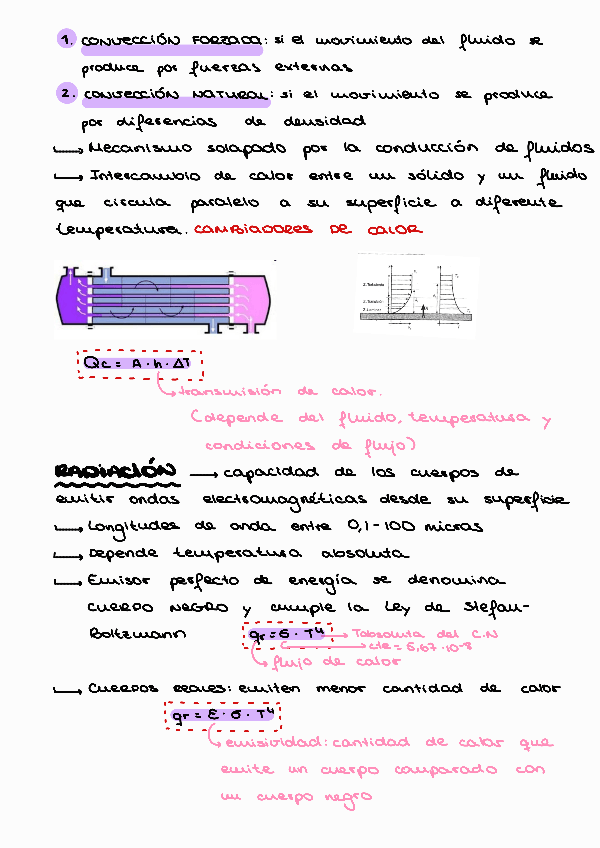 1. CONVECCIÓN FORZADA: si el movimiento del fluido se
produce por fuerzas externas
2. CONVECCIÓN NATURAL: si el movimiento se produce
por diferencias de densidad
→ Mecanismo solapado por la conducción de fluidos
→ Intercambio de calor entre un sólido y un fluido
que circula paralelo a su superficie a diferente
temperatura. CAMBIADORES DE CALOR
Qc = A · h · ΔT
transmisión de calor.
(depende del fluido, temperatura y
condiciones de flujo)
RADIACIÓN → capacidad de los cuerpos de
emitir ondas electromagnéticas desde su superficie
→ Longitudes de onda entre 0,1-100 micras
→ Depende temperatura absoluta
→ Emisor perfecto de energía se denomina
CUERPO NEGRO y cumple la Ley de Stefan-
Boltzmann qr = σ · T⁴ → Tabsoluta del C.N
cte = 5,67·10⁻⁸
flujo de calor
→ Cuerpos reales: emiten menor cantidad de calor
qr = Ɛ · σ · T⁴
emisividad: cantidad de calor que
emite un cuerpo comparado con
un cuerpo negro